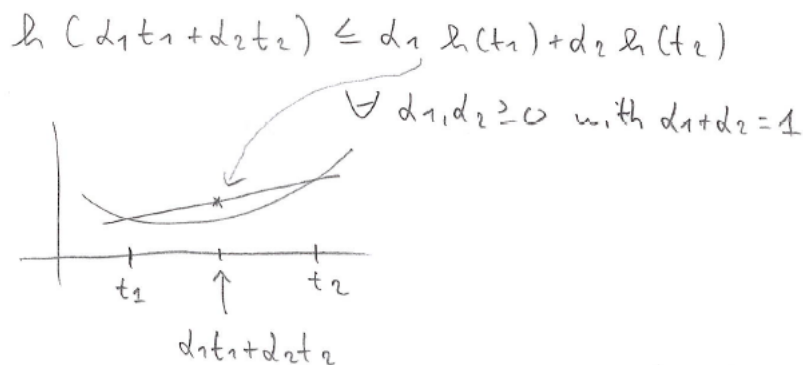 h (α₁t₁+α₂t₂) ≤ α₁ h(t₁)+α₂ h(t₂)
∀ α₁,α₂ ≥ 0 with α₁+α₂ = 1
t₁ t₂
α₁t₁+α₂t₂